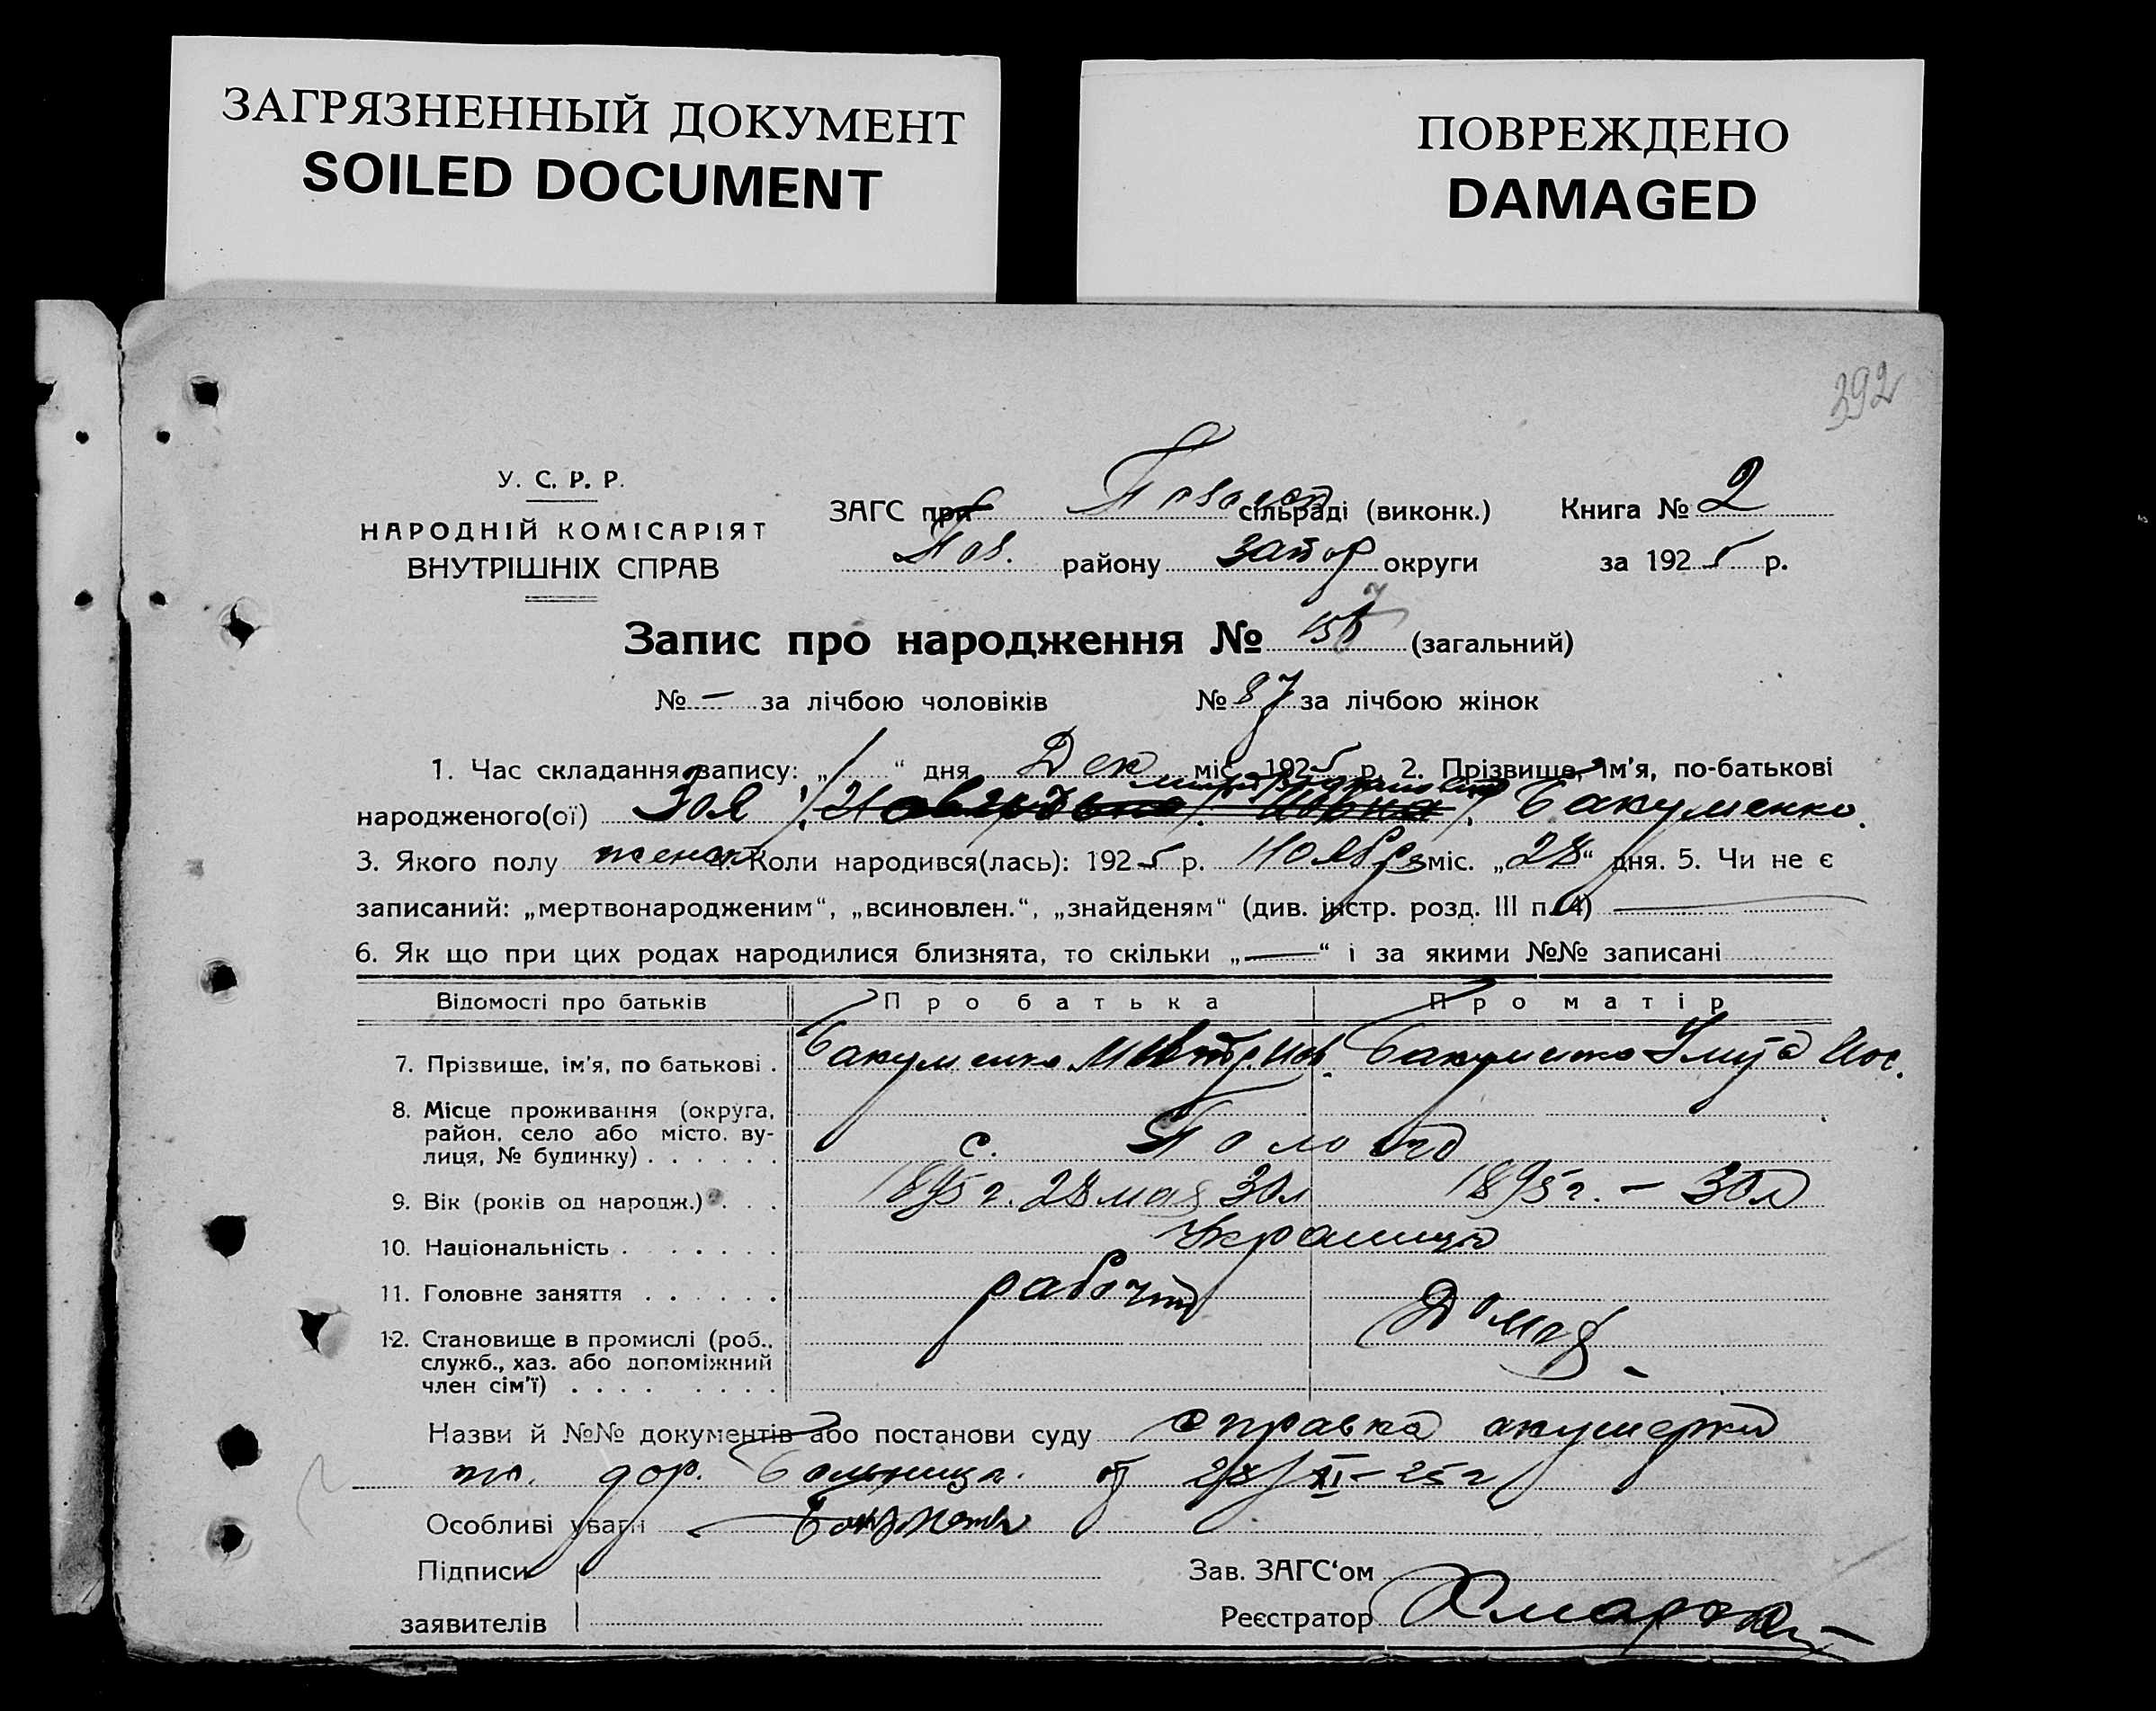 ЗАГРЯЗНЕННЫЙ ДОКУМЕНТ
SOILED DOCUMENT
ПОВРЕЖДЕНО
DAMAGED
392
У. С. Р. Р.
НАРОДНІЙ КОМІСАРІЯТ
ВНУТРІШНІХ СПРАВ
ЗАГС при сільраді (виконк.)
Пол. району Запор округи
Книга № 2
за 1925 р.
Запис про народження № (загальний)
№ — за лічбою чоловіків № 87 за лічбою жінок
1. Час складання запису: „1“ дня Дек міс. 1925 р. 2. Прізвище, ім'я, по-батькові
народженого(ої) Зоя Бакуменко.
3. Якого полу женск 4. Коли народився(лась): 1925 р. Ноября міс. „28“ дня. 5. Чи не є
записаний: „мертвонародженим“, „всиновлен.“, „знайденям“ (див. інстр. розд. III п. 4) —
6. Як що при цих родах народилися близнята, то скільки „—“ і за якими №№ записані
Відомості про батьків Про батька Про матір
7. Прізвище, ім'я, по батькові . Бакуменко Бакуменко
8. Місце проживання (округа,
район, село або місто, ву-
лиця, № будинку) . . . . . . с. Пологи
9. Вік (років од народж.) . . . 1895 г. 28 мая 30 л 1895 г. — 30 л
10. Національність . . . . . . . Украинцы
11. Головне заняття . . . . . . рабочий
12. Становище в промислі (роб., Домаш.
служб., хаз. або допоміжний
член сім'ї) . . . . . . . .
Назви й №№ документів або постанови суду справка акушерки
дор. больницы. от 28/XI-25 г
Особливі уваги
Підписи
заявителів
Зав. ЗАГС'ом
Реєстратор